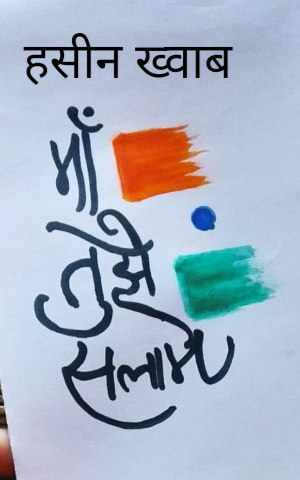 हसीन ख्वाब
माँ
तुझे
सलाम